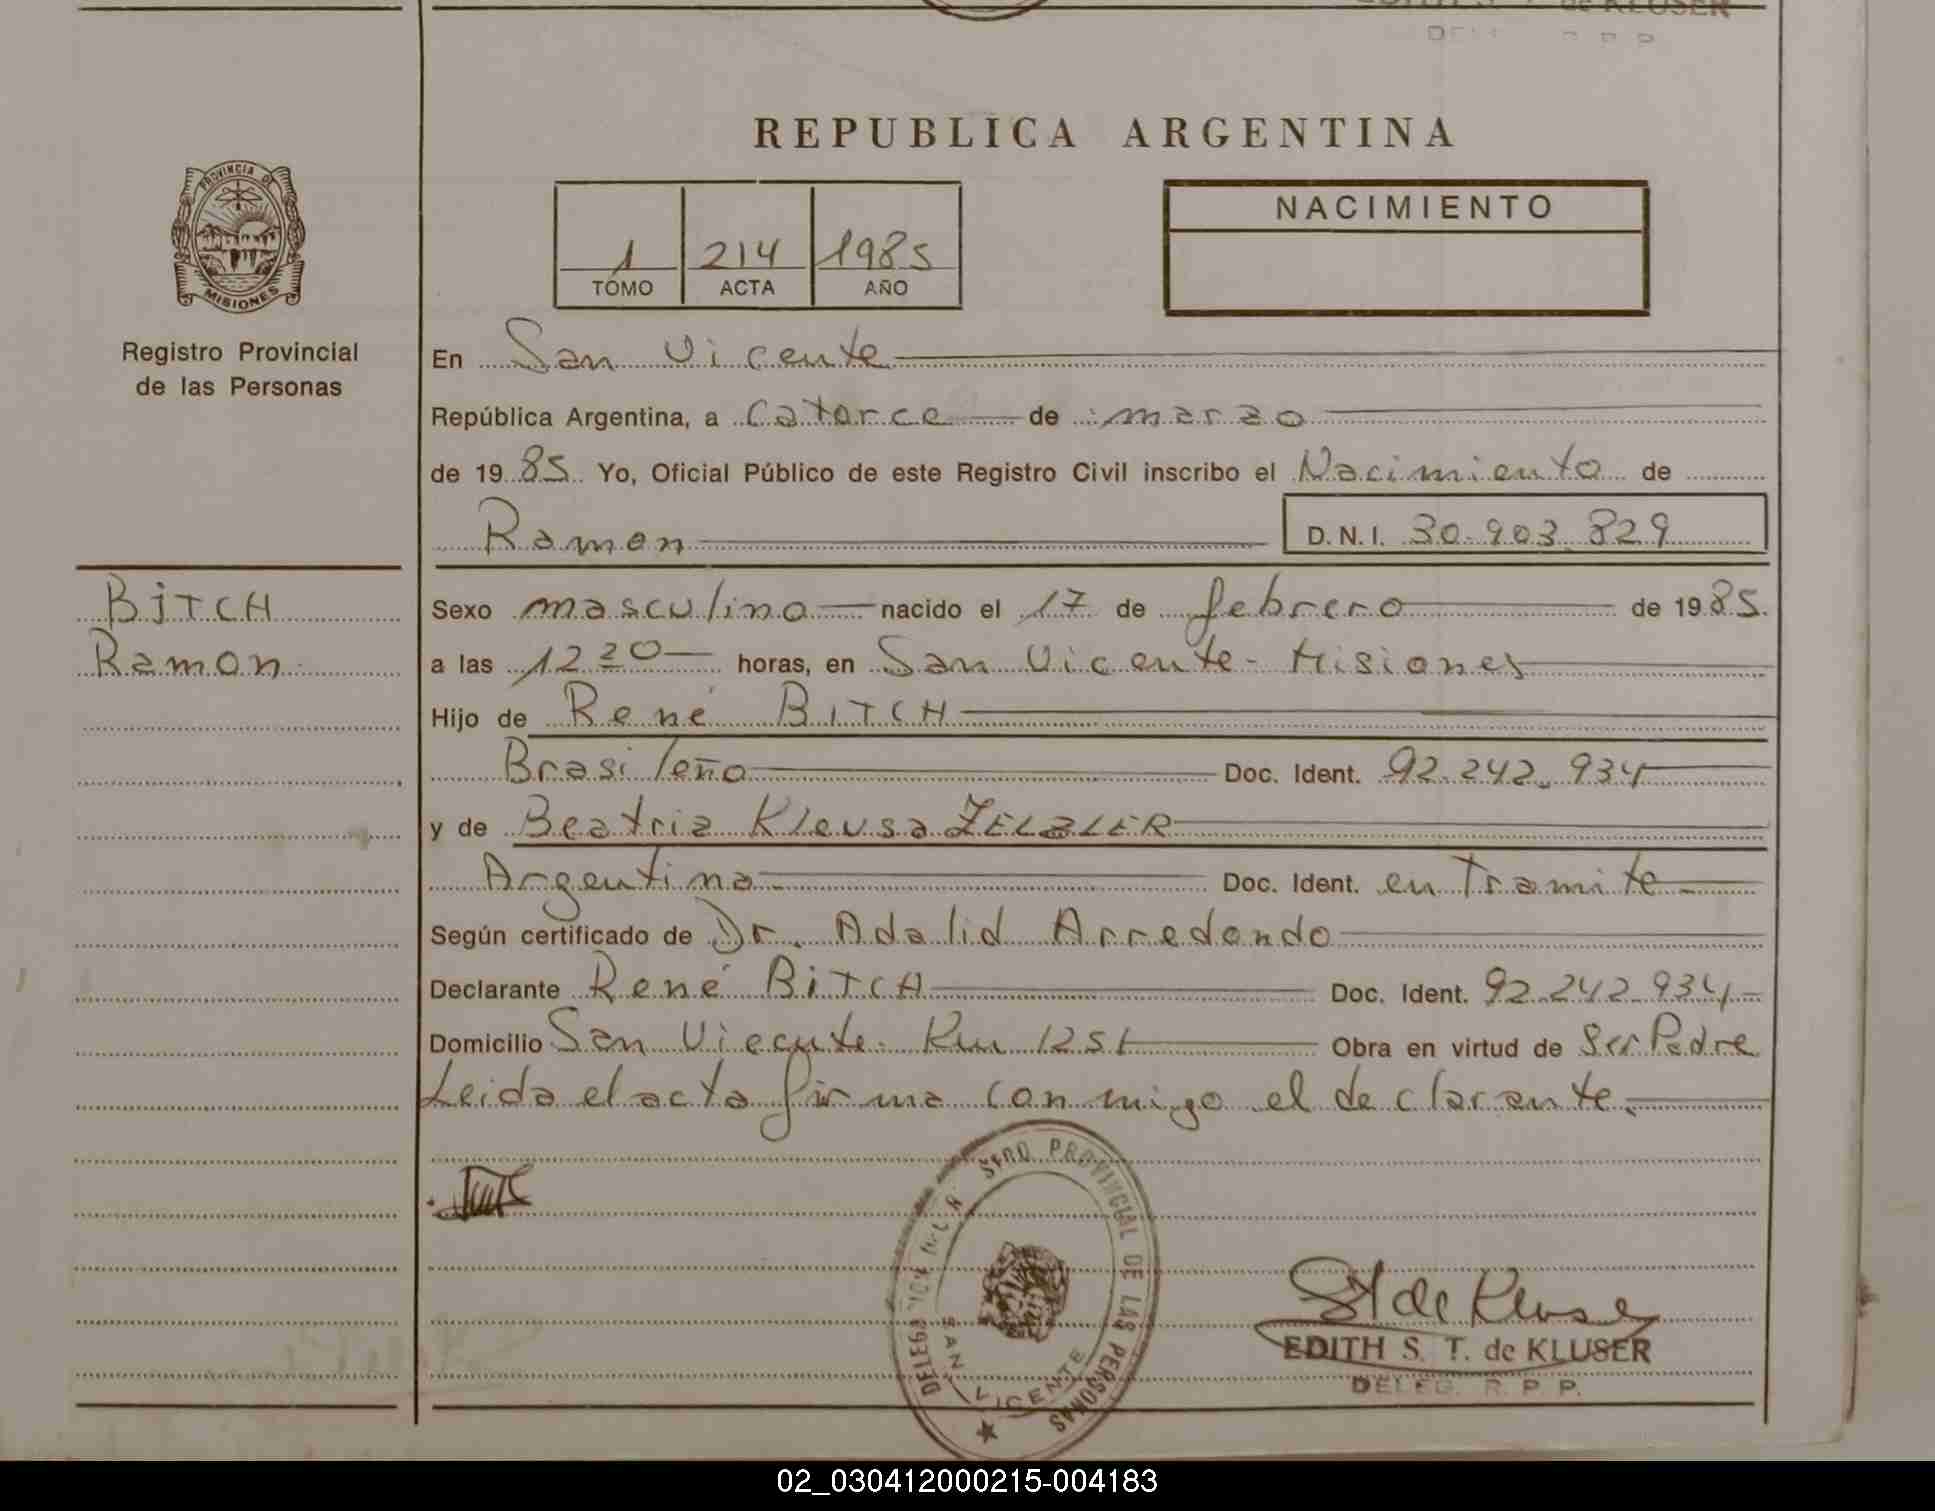 EDITH S. T. de KLUSER
REPUBLICA ARGENTINA
PROVINCIA DE
MISIONES
Registro Provincial
de las Personas
1 214 1985
TOMO ACTA AÑO
NACIMIENTO
En San Vicente
República Argentina, a Catorce de marzo
de 1985 Yo, Oficial Público de este Registro Civil inscribo el Nacimiento de
Ramon D.N.I. 30.903.829
BiTCH
Ramon
Sexo masculino nacido el 17 de febrero de 1985.
a las 12 20 horas, en San Vicente - Misiones
Hijo de René BiTCH
Brasileño Doc. Ident. 92.242.934
y de Beatriz Kleusa ZELZLER
Argentina Doc. Ident. en Tramite
Según certificado de Dr. Adalid Arredondo
Declarante René BiTCH Doc. Ident. 92.242.934
Domicilio San Vicente - Km 1251 Obra en virtud de Ser Padre
Leida el acta firma con migo el declarante.
DELEGACION DEL R. PROVINCIAL DE LAS PERSONAS
SAN VICENTE
de Kluser
EDITH S. T. de KLUSER
DELEG. R. P. P.
02_030412000215-004183